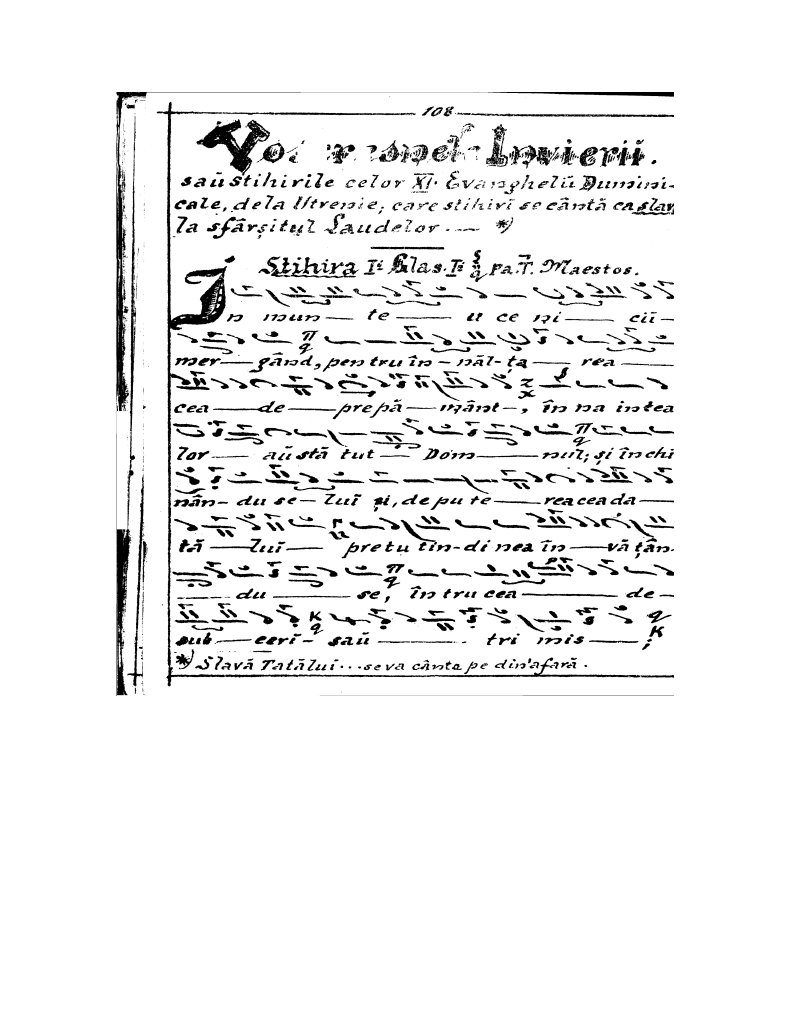 108
Învierii.
saŭ stihirile celor XI. Evangheliĭ Dumini-
cale, dela Utrenie; care stihirĭ se cântă ca slav
la sfârșitul Laudelor. — *)
Stihira Iᵃ Glas. Iᵘ Pa. T. Maestos.
În mun— te—— u ce ni—— cii—
mer—gând, pen tru în—năl-ța— rea——
cea——de——pre pă——mânt-, în na intea
lor—— aŭ stă tut— Dom——nul; și închi
nân-du se-luĭ și, de pu te——rea cea da——
tă——luĭ— pre tu tin-di nea în——vă țân-
——du————se, în tru cea——————de—
sub—cerĭ- saŭ—————— tri mis——
*) Slavă Tatăluĭ...se va cânta pe din'afară.